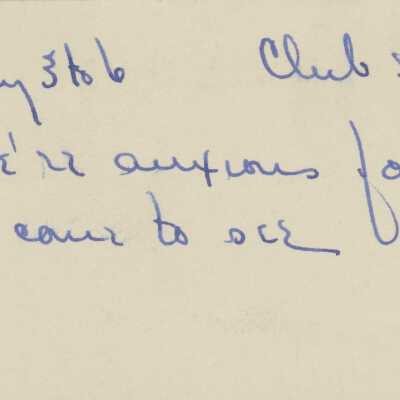 y 3 to 6 Club
e're anxious fo
come to see